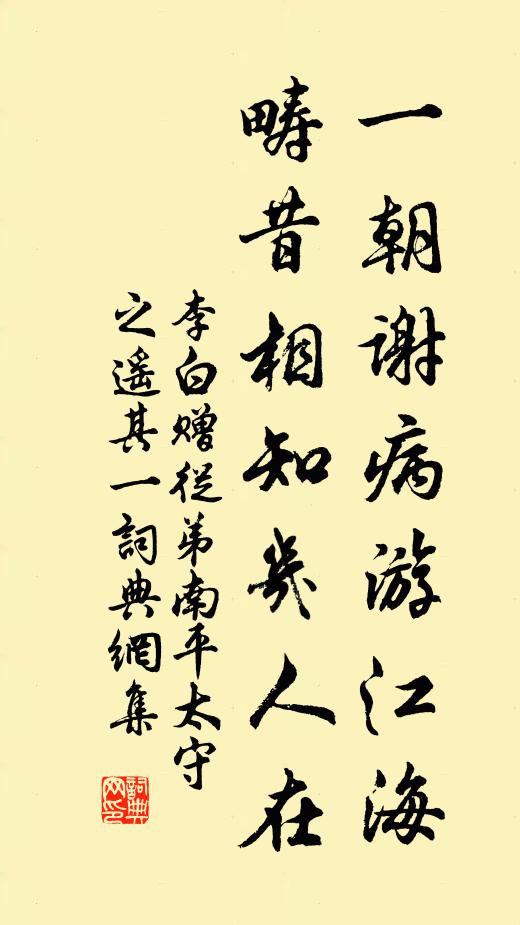 一朝謝病游江海
疇昔相知幾人在
李白贈從弟南平太守
之遥其一詞典網集
詞典網印